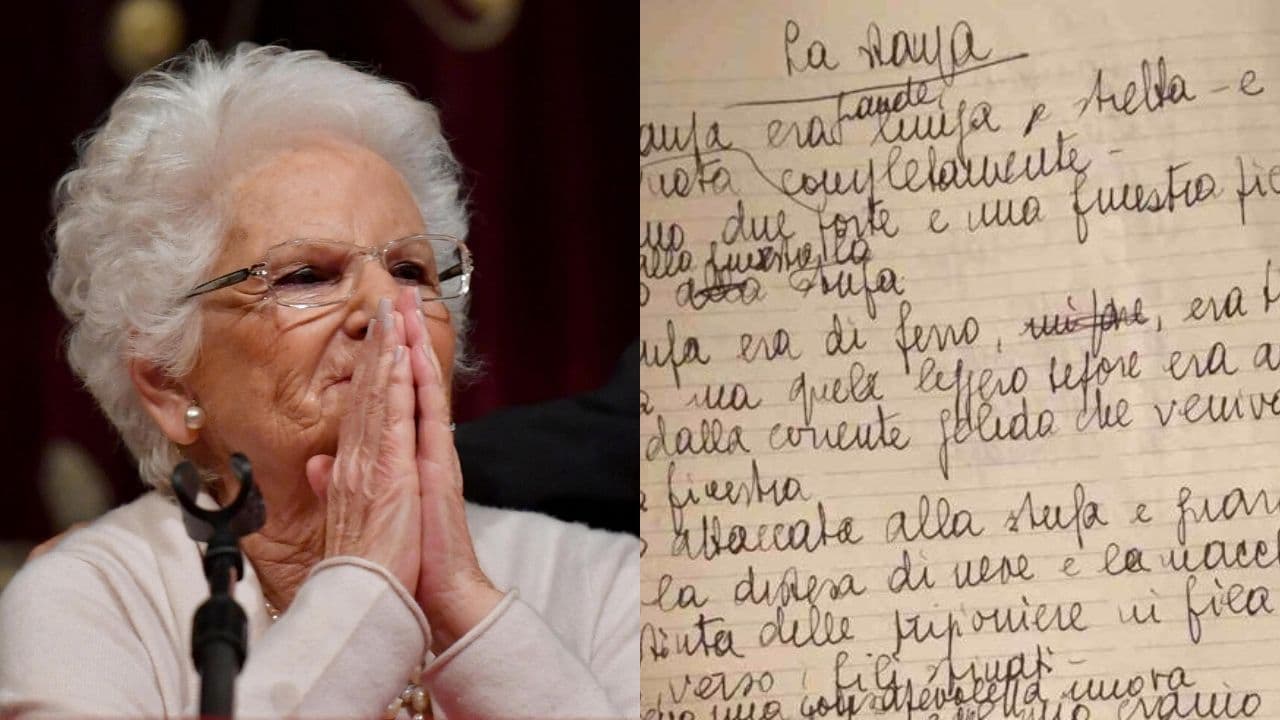 La stanza
grande,
anza era lunga e stretta - e
uota completamente -
no due porte e una finestra
alla
stufa
ufa era di ferro, mi pare, era t
ma quel leggero tepore era a
dalla corrente gelida che veniva
a finestra
o attaccata alla stufa e guar
la distesa di neve e la macch
tinta delle prigioniere in fila
verso i fili spinati -
una consapevolezza nuova